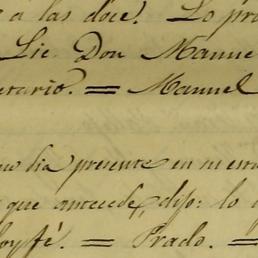 a las doce. Lo pro
Lic. Don Manue
etario. = Manuel
dia presente en mi
que antecede, dijo: lo
doy fé. = Prado. =